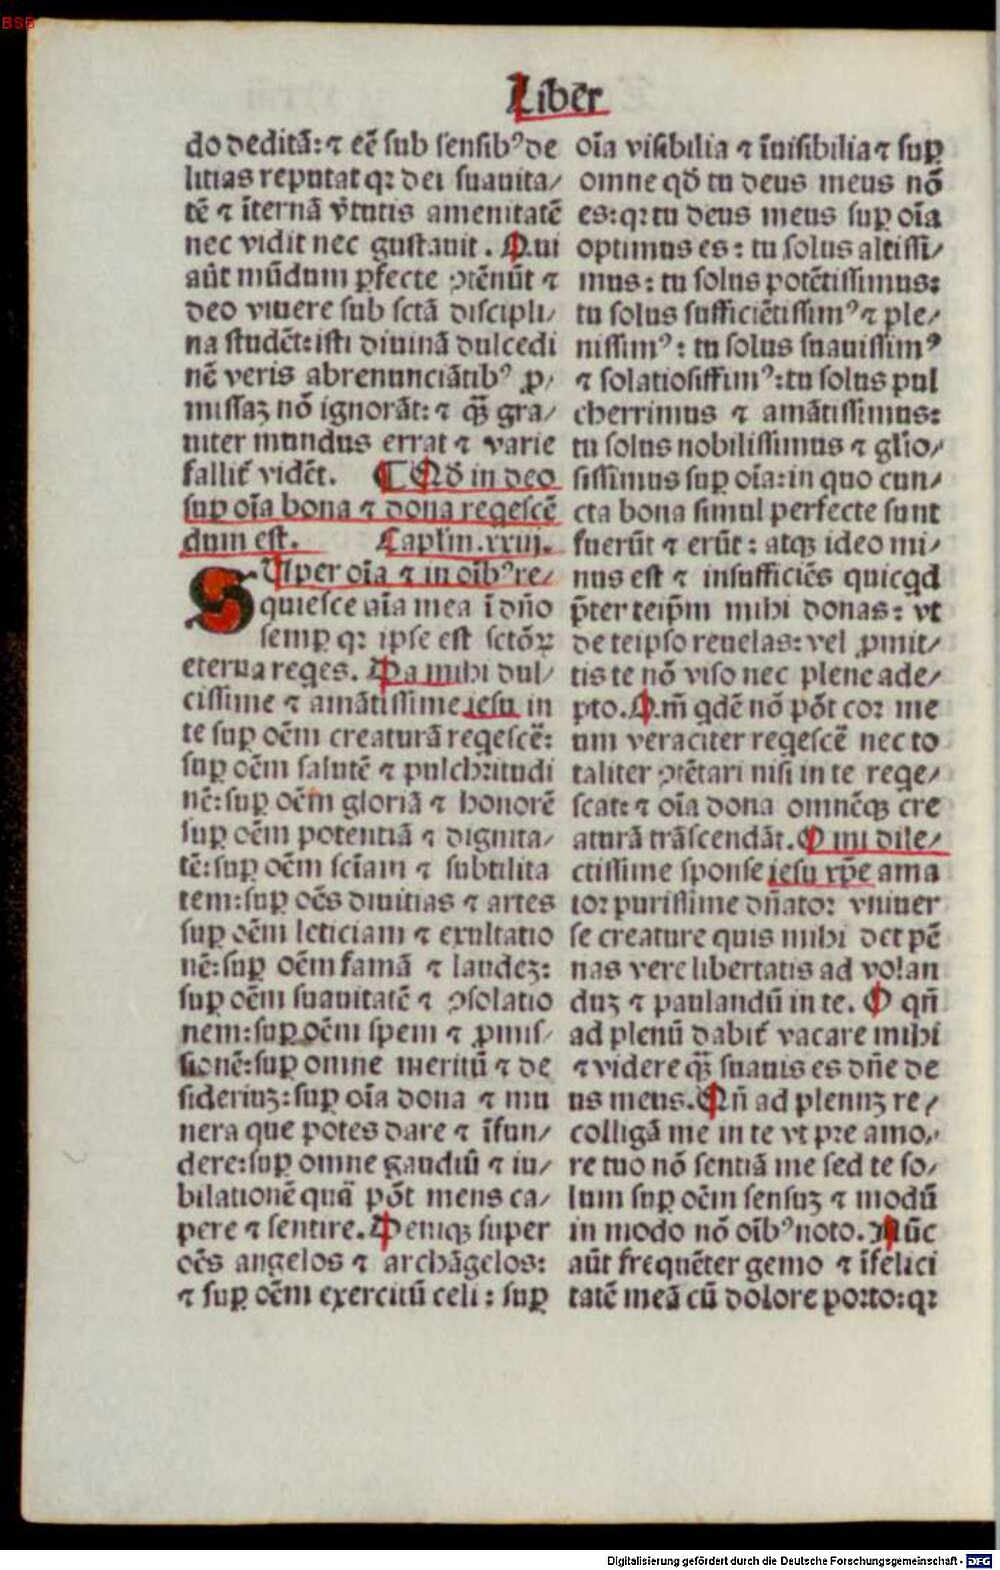 BSB
Liber
do deditā: ⁊ eē sub sensibꝰ de
litias reputat qꝛ dei suauita/
tē ⁊ īternā v̄tutis amenitatē
nec vidit nec gustauit. Qui
aūt mūdum ꝑfecte ↄtēnūt ⁊
deo viuere sub sctā discipli/
na studēt: isti diuinā dulcedi
nē veris abrenunciātibꝰ ꝓ/
missaꝫ nō ignorāt: ⁊ qꝫ̄ gra/
uiter mundus errat ⁊ varie
fallit̄ vidēt. ¶ Qd̄ in deo
suꝑ oīa bona ⁊ dona reqescē
dum est. Capl̄m. xxiij.
SUper oīa ⁊ in oībꝰ re/
quiesce aīa mea ī dn̄o
semꝑ qꝛ ipse est sctōꝝ
eterna reqes. Da mihi dul/
cissime ⁊ amātissime iesu in
te suꝑ oēm creaturā reqescē:
suꝑ oēm salutē ⁊ pulchꝛitudi
nē: suꝑ oēm gloriā ⁊ honorē
suꝑ oēm potentiā ⁊ dignita/
tē: suꝑ oēm scīam ⁊ subtilita
tem: suꝑ oēs diuitias ⁊ artes
suꝑ oēm leticiam ⁊ exultatio
nē: suꝑ oēm famā ⁊ laudeꝫ:
suꝑ oēm suauitatē ⁊ ↄsolatio
nem: suꝑ oēm spem ⁊ ꝓmis/
sionē: suꝑ omne meritū ⁊ de
sideriuꝫ: suꝑ oīa dona ⁊ mu
nera que potes dare ⁊ īfun/
dere: suꝑ omne gaudiū ⁊ iu/
bilationē quā pōt mens ca/
pere ⁊ sentire. Deniqꝫ super
oēs angelos ⁊ archāgelos:
⁊ suꝑ oēm exercitū celi: suꝑ
oīa visibilia ⁊ īuisibilia ⁊ suꝑ
omne qd̄ tu deus meus nō
es: qꝛ tu deus meus suꝑ oīa
optimus es: tu solus altissi/
mus: tu solus potētissimus:
tu solus sufficiētissimꝰ ⁊ ple/
nissimꝰ: tu solus suauissimꝰ
⁊ solatiosissimꝰ: tu solus pul
cherrimus ⁊ amātissimus:
tu solus nobilissimus ⁊ gl̄io/
sissimus suꝑ oīa: in quo cun/
cta bona simul perfecte sunt
fuerūt ⁊ erūt: atqꝫ ideo mi/
nus est ⁊ insufficiēs quicqd
p̄ter teip̄m mihi donas: vt
de teipso reuelas: vel ꝓmit/
tis te nō viso nec plene ade/
pto. Qm̄ qdē nō pōt coꝛ me
um veraciter reqescē nec to
taliter ↄtētari nisi in te reqe/
scat: ⁊ oīa dona omnēqꝫ cre
aturā trāscendāt. O mi dile/
ctissime sponse iesu xp̄e ama
toꝛ purissime dn̄atoꝛ vniuer
se creature quis mihi det pē
nas vere libertatis ad volan
duꝫ ⁊ paulandū in te. O qn̄
ad plenū dabit̄ vacare mihi
⁊ videre qꝫ̄ suauis es dn̄e de
us meus. Qn̄ ad plenuꝫ re/
colligā me in te vt pꝛe amo/
re tuo nō sentiā me sed te so/
lum suꝑ oēm sensuꝫ ⁊ modū
in modo nō oībꝰ noto. Nūc
aūt frequēter gemo ⁊ īfelici
tatē meā cū dolore poꝛto: qꝛ
Digitalisierung gefördert durch die Deutsche Forschungsgemeinschaft - DFG